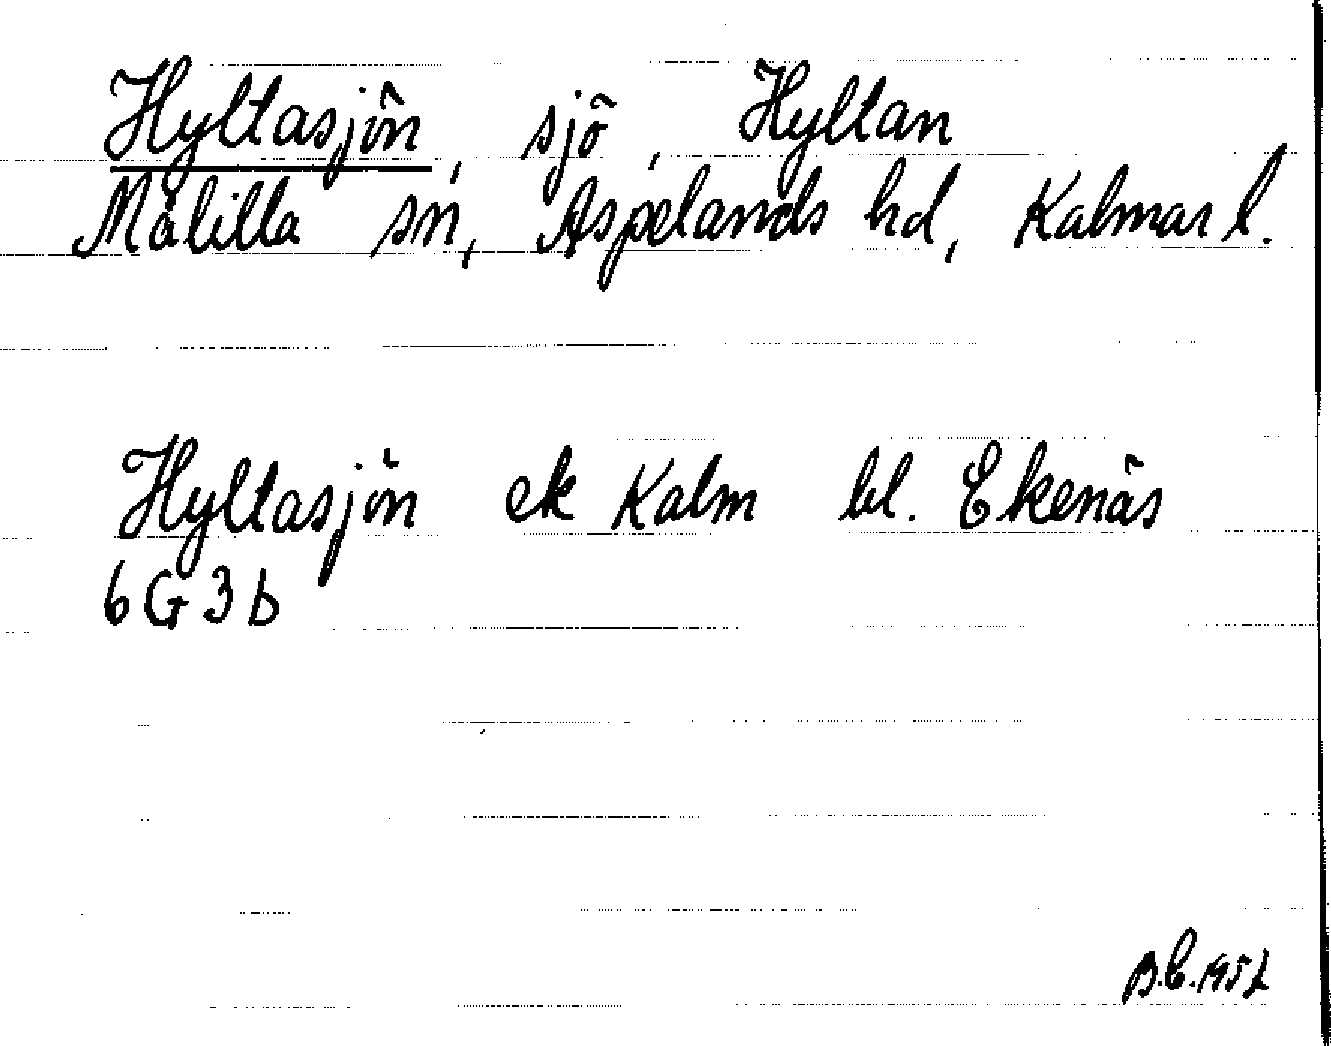 Hyltasjön, sjö, Hyltan
Målilla sn, Aspelands hd, Kalmar l.
Hyltasjön ek Kalm bl. Ekenäs
6G3b
B.C. 1952